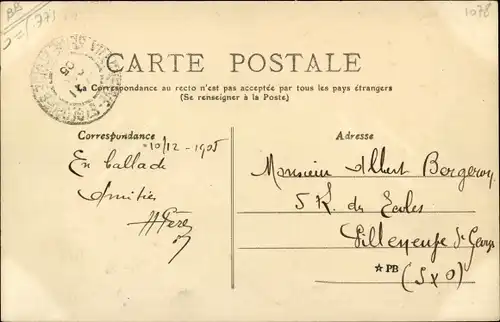 1078
CARTE POSTALE
La Correspondance au recto n'est pas acceptée par tous les pays étrangers
(Se renseigner à la Poste)
Correspondance
10/12 - 1905
En ballade
Amitiés
Adresse
Monsieur Albert Bergeron
5 R. des Ecoles
Villeneuve St Georges
★ PB (S x O)